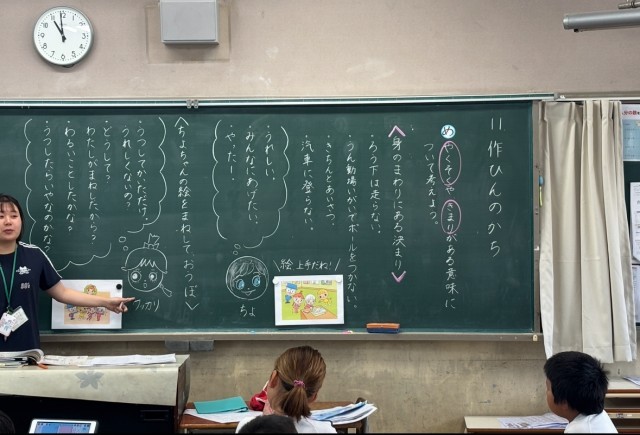 11.作ひんのかち
め やくそくやきまりがある意味に
ついて考えよう。
〈身のまわりにある決まり〉
・ろう下は走らない。
・うん動場いがいでボールをつかない。
・きちんとあいさつ。
・汽車に登らない。
絵 上手だね!
ちよ
・うれしい。
・みんなにあげたい。
・やったー!
〈ちよちゃんの絵をまねしておうぼ〉
・うつしてかいただけ。
うれしくないの?
・どうして?
・わたしがまねしたから?
・わるいことしたかな?
・うつしたらいやなのかな?